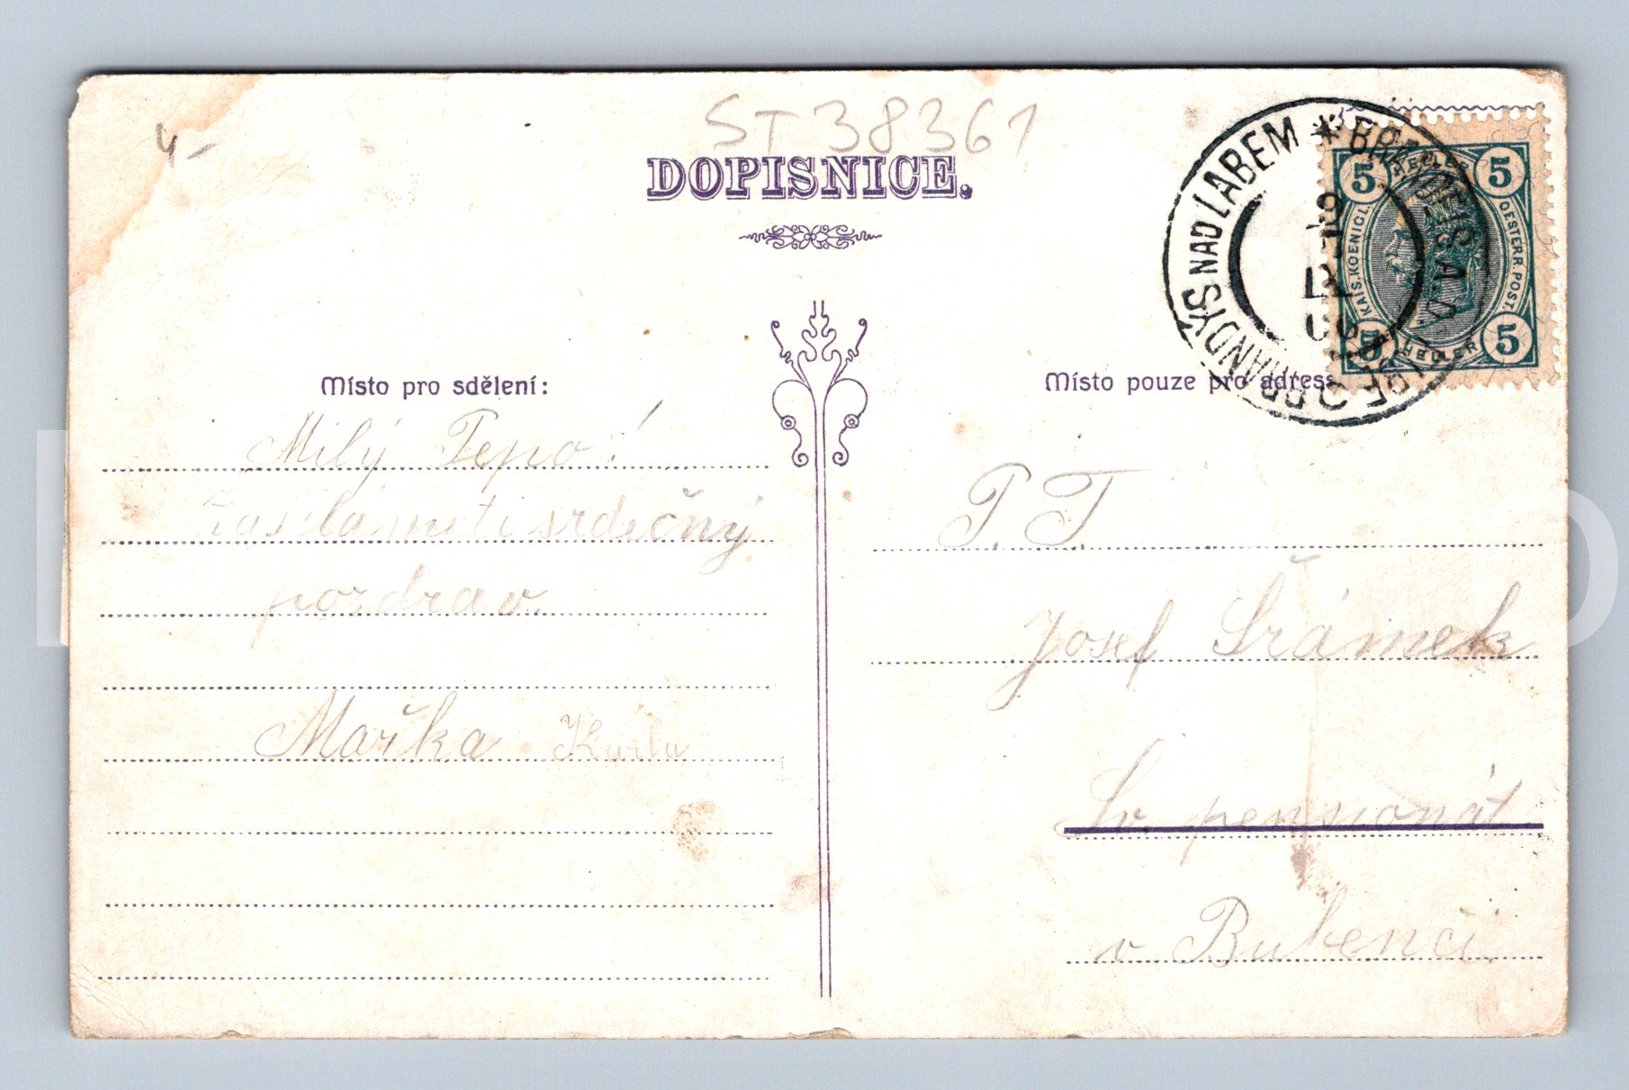 4-
ST 38361
DOPISNICE.
BRANDÝS NAD LABEM * BRANDEIS A.D. ELBE
5 5
KAIS. KOENIGL. OESTERR. POST
5 5
HELLER HELLER
Místo pro sdělení:
Milý Pepo!
Zasíláme ti srdečný
pozdrav.
Mařka Karla
Místo pouze pro adress
P. T.
Josef Šrámek
pensionát
v Bubenči